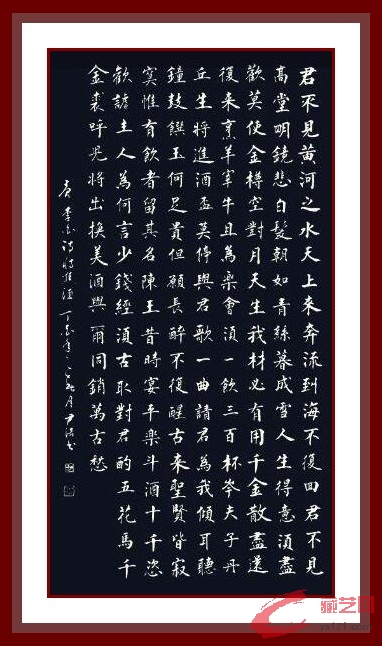 君不見黃河之水天上來奔流到海不復回君不見
高堂明鏡悲白髮朝如青絲暮成雪人生得意須盡
歡莫使金樽空對月天生我材必有用千金散盡還
復来烹羊宰牛且為樂會須一飲三百杯岑夫子丹
丘生將進酒盃莫停與君歌一曲請君為我傾耳聽
鐘鼓饌玉何足貴但願長醉不復醒古来聖賢皆寂
寞惟有飲者留其名陳王昔時宴平樂斗酒十千恣
歡謔主人為何言少錢經須古取對君酌五花馬千
金裘呼児將出換美酒與爾同銷萬古愁
唐李白詩將進酒丁亥年月尹書
藏艺网